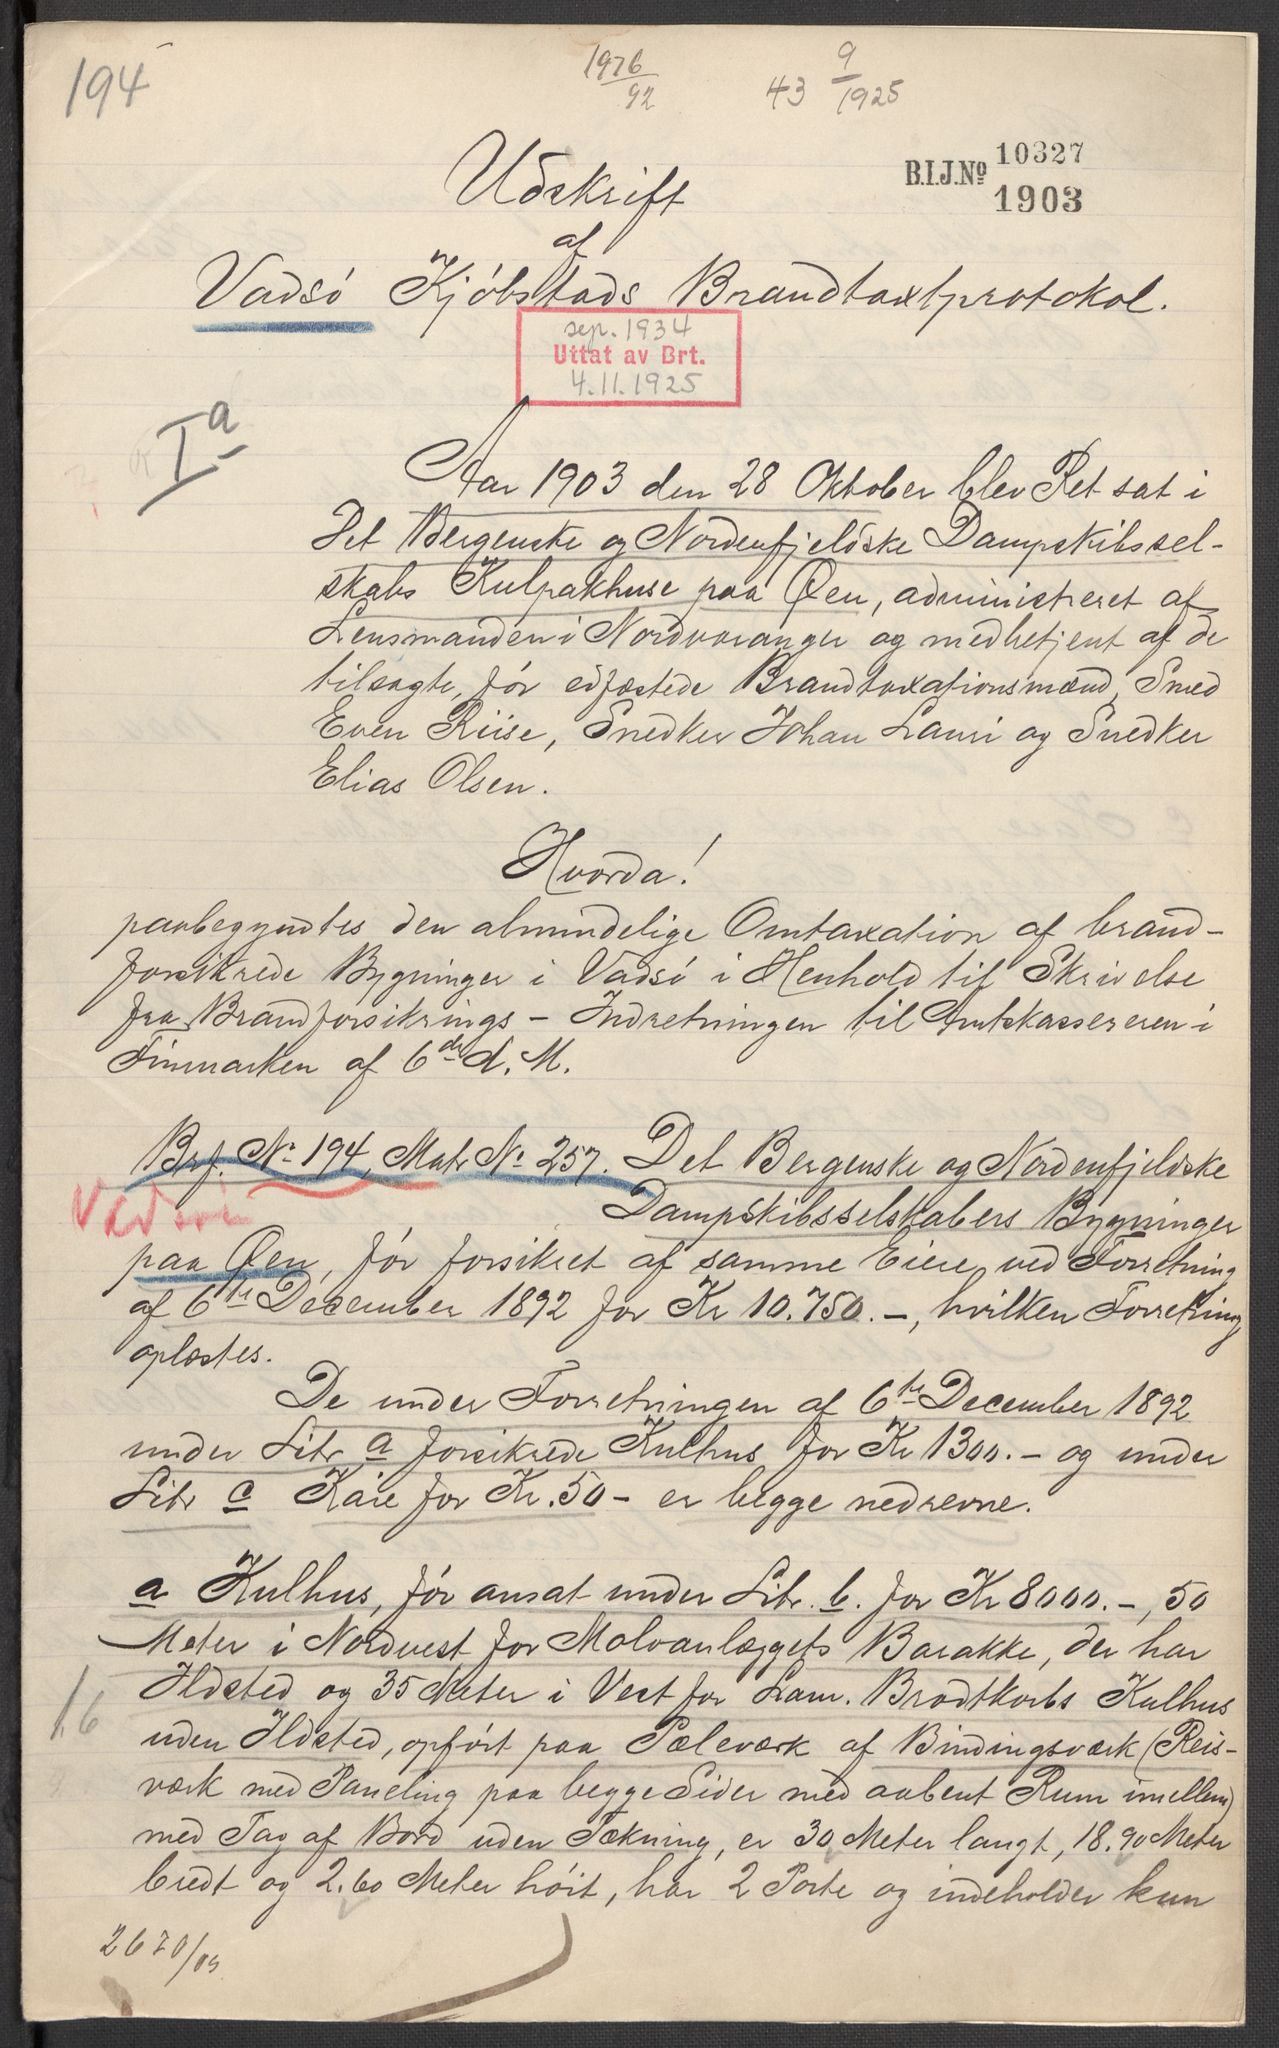 194
1976/92
43 9/1925
B.I.J.Nº 10327
1903
Udskrift
af
Vadsö Kjöbstads Brandtaxtprotokol.
sep. 1934
Uttat av Brt.
4.11.1925
I a
Aar 1903 den 28 Oktober blev Ret sat i
Det Bergenske og Nordenfjeldske Dampskibssel-
skabs Kulpakhuse paa Øen, administreret af
Lensmanden i Nordvaranger og medbetjent af de
tilsagte, för edfæstede Brandtaxationsmænd, Smed
Even Riise, Snedker Johan Lauri og Snedker
Elias Olsen.
Hvorda!
paabegyndtes den almindelige Omtaxation af brand-
forsikrede Bygninger i Vadsö i Henhold til Skrivelse
fra Brandforsikrings-Indretningen til Amtskassereren i
Finmarken af 6te d. M.
Brf. Nº 194, Matr Nº 257. Det Bergenske og Nordenfjeldske
Vadsø
Dampskibsselskabers Bygninger
paa Øen, för forsikret af samme Eiere ved Forretning
af 6te December 1892 for Kr 10.750.-, hvilken Forretning
oplæstes.
De under Forretningen af 6te December 1892
under Litr a forsikrede Kulhus for Kr 1300.- og under
Litr c Kaie for Kr. 50- er begge nedrevne.
a Kulhus, för ansat under Litr. b. for Kr 8000.-, 50
Meter i Nordvest for Moloanlæggets Barakke, der har
Ildsted og 35 Meter i Vest for Lam. Brodtkorbs Kulhus
1.6
uden Ildsted, opfört paa Pæleværk af Bindingsværk (Reis-
værk med Paneling paa begge Sider med aabent Rum imellem)
med Tag af Bord uden Tækning, er 30 Meter langt, 18.90 Meter
bredt og 2.60 Meter höit, har 2 Porte og indeholder kun
2670/03